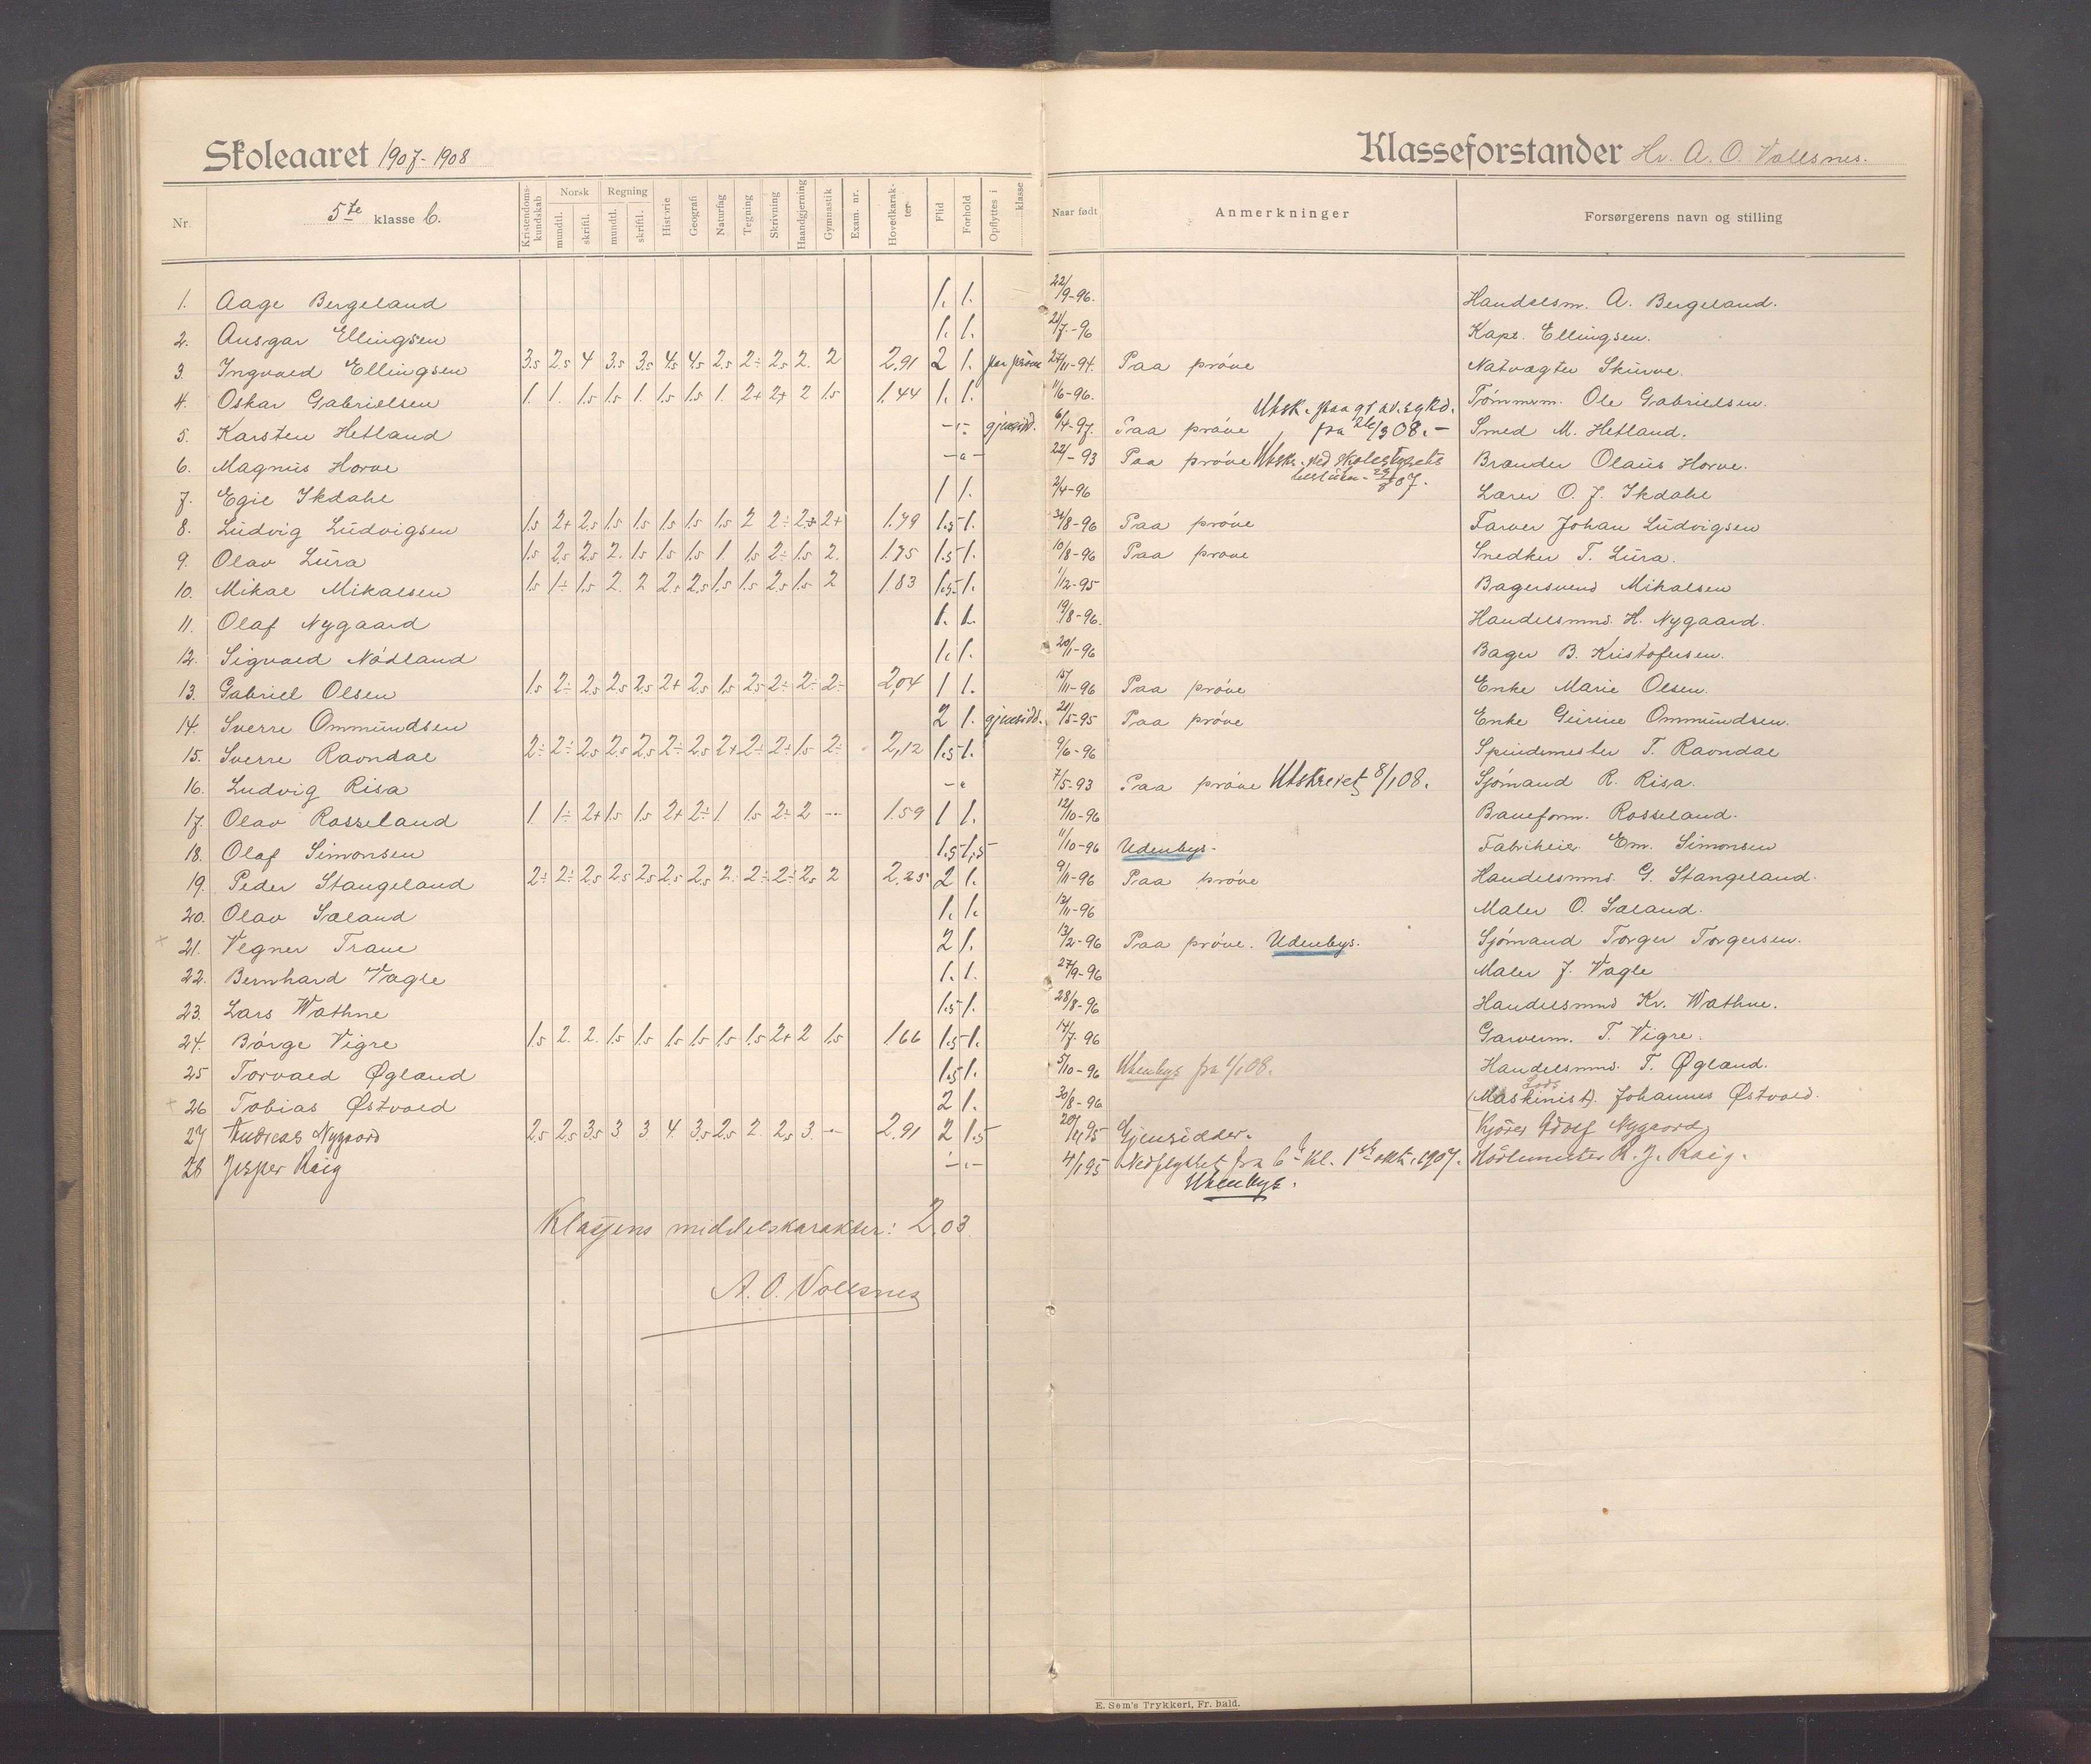 Skoleaaret 1907-1908 Klasseforstander Hr. A. O. Vollsnes.
Nr. 5te klasse C. Kristendomskundskab Norsk mundtl. skriftl. Regning mundtl. skriftl. Historie Geografi Naturfag Tegning Skrivning Haandgjerning Gymnastik Exam. nr. Hovedkarakter Flid Forhold Opflyttes i klasse Naar født Anmerkninger Forsørgerens navn og stilling
1. Aage Bergeland 1. 1. 22/9-96. Handelsm. A. Bergeland.
2. Ansgar Ellingsen 1. 1. 21/7-96 Kapt. Ellingsen.
3. Ingvald Ellingsen 3.5 2.5 4 3.5 3.5 4.5 4.5 2.5 2÷ 2.5 2. 2 2.91 2 1. paa prøve 27/11-94. Paa prøve Natvægter Skurve.
4. Oskar Gabrielsen 1. 1. 1.5 1.5 1. 1.5 1.5 1. 2+ 2+ 2 1.5 1.44 1. 1. 11/6-96. Tømmerm. Ole Gabrielsen.
5. Karsten Hetland -"- gjensidd. 6/4-97. Paa prøve, Utsk. paa gr. av sykd. fra 26/3 08. - Smed M. Hetland.
6. Magnus Horve -"- 22/-93 Paa prøve Utskr. ved skolestyrets 07. Brander Olaus Horve.
7. Egil Skdahl 1 1. 2/4-96 Lærer O. J. Skdahl
8. Ludvig Ludvigsen 1.5 2+ 2.5 1.5 1.5 1.5 1.5 1.5 2 2÷ 2+ 2+ 1.79 1.5 1. 31/8-96 Paa prøve Farver Johan Ludvigsen
9. Olav Lura 1.5 2.5 2.5 2. 1.5 1.5 1.5 1. 1.5 2÷ 1.5 2. 1.75 1.5 1. 10/8-96 Paa prøve Snedker T. Lura.
10. Mikal Mikalsen 1.5 1÷ 1.5 2. 2 2.5 2.5 1.5 1.5 2.5 1.5 2 1.83 1.5 1. 1/2-95 Bagersvend Mikalsen
11. Olaf Nygaard 1. 1. 19/8-96. Handelsmnd. H. Nygaard.
12. Sigvald Nødland 1. 1. 20/1-96 Bager B. Kristofersen.
13. Gabriel Olsen 1.5 2÷ 2.5 2.5 2.5 2+ 2.5 1.5 2.5 2÷ 2÷ 2÷ 2,04 1 1. 15/11-96 Paa prøve Enke Marie Olsen.
14. Sverre Ommundsen 2 1. gjensidd. 21/5-95 Paa prøve Enke Gurine Ommundsen.
15. Sverre Ravndal 2÷ 2÷ 2.5 2.5 2.5 2÷ 2.5 2+ 2÷ 2÷ 1.5 2÷ 2,12 1.5 1. 9/6-96 Spindemester T. Ravndal
16. Ludvig Risa -"- 7/5-93 Paa prøve Utskrevet 8/1 08. Sjømand R. Risa.
17. Olav Rosseland 1. 1÷ 2+ 1.5 1.5 2+ 2÷ 1 1.5 2÷ 2 -- 1.59 1 1. 12/10-96 Baneform. Rosseland.
18. Olaf Simonsen 1.5 1,5 11/10-96 Udenbys. Fabrikeier Em. Simonsen
19. Peder Stangeland 2÷ 2÷ 2.5 2.5 2.5 2.5 2.5 2. 2÷ 2÷ 2.5 2 2.25 2 1. 9/11-96 Paa prøve Handelsmnd. G. Stangeland.
20. Olav Sæland 1. 1. 13/11-96 Maler O. Sæland.
21. Vegner Trane 2 1. 13/2-96 Paa prøve. Udenbys. Sjømand Torger Torgersen.
22. Bernhard Vagle 1. 1. 27/9-96 Maler J. Vagle
23. Lars Wathne 1.5 1. 28/8-96 Handelsmnd Kr. Wathne.
24. Børge Vigre 1.5 2. 2. 1.5 1.5 1.5 1.5 1.5 1.5 2+ 2 1.5 1.66 1.5 1. 17/7.96 Garverm. T. Vigre.
25 Torvald Øgland 1.5 1. 5/10-96 Utenbys fra 1/1 08. Handelsmnd. T. Øgland.
26 Tobias Østvold 2 1. 30/8-96 (Maskinist). Lods Johannes Østvold.
27 Andreas Nygaard 2.5 2.5 3.5 3 3 4. 3.5 2.5 2 2.5 3. -- 2.91 2 1.5 20/11 95 Gjensidder. Kjører Adolf Nygaard
28 Jesper Raig -"- 4/1 95 Nedflyttet fra 6te Kl. 1ste okt. 1907. R. J. Raig.
Utenbys.
Klassens middelskarakter: 2.03.
A. O. Vollsnes
E. Sem's Trykkeri, Fr. hald.